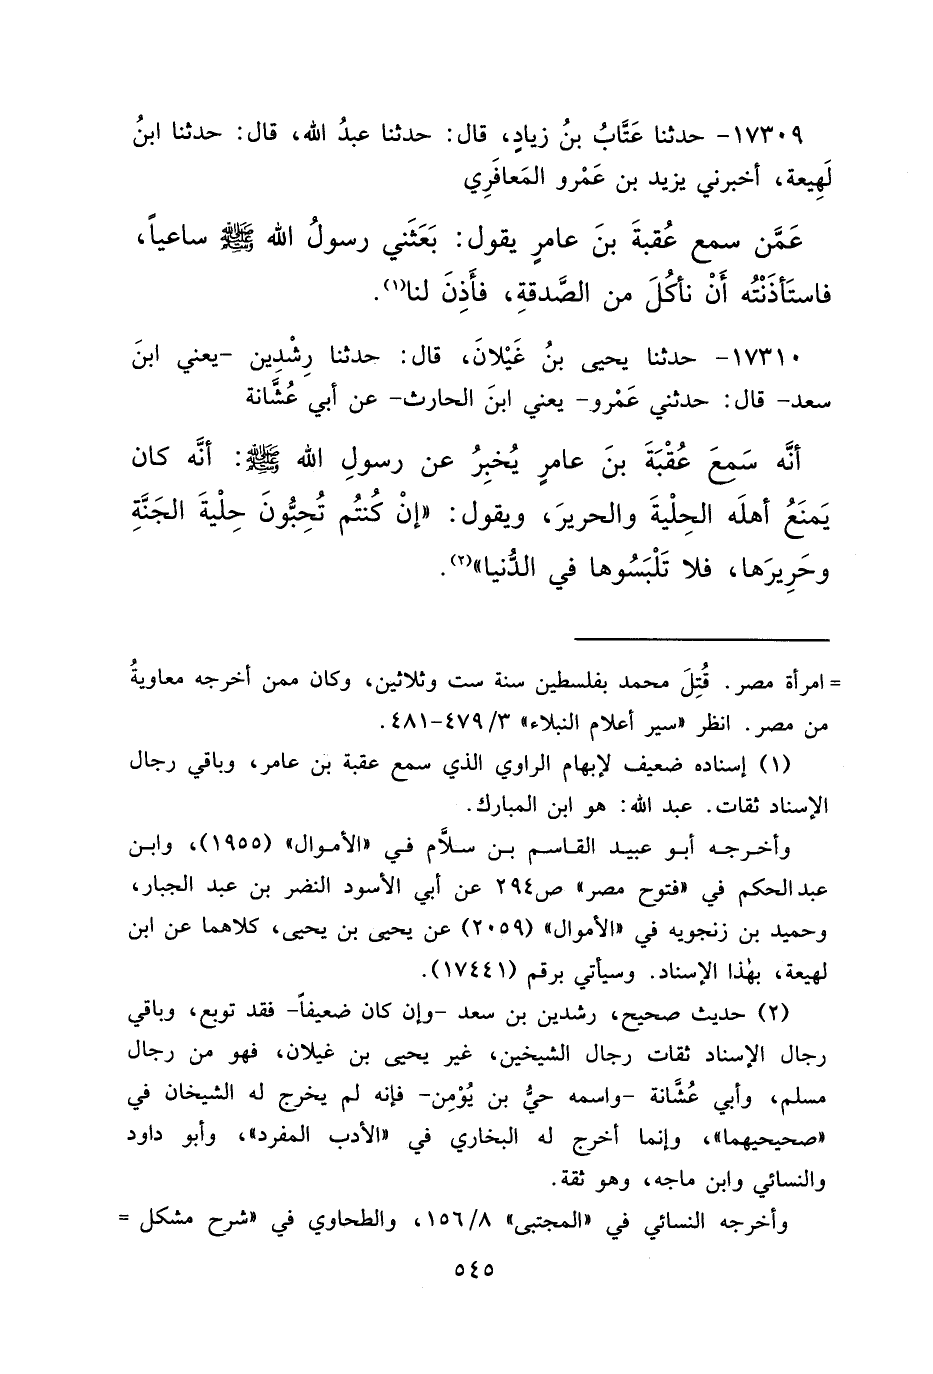 ١٧٣٠٩- حدثنا عَتَّابُ بنُ زيادٍ، قال: حدثنا عبدُ الله، قال: حدثنا ابنُ
لَهِيعة، أخبرني يزيد بن عَمْرو المَعافَرِي
عَمَّن سمع عُقبةَ بنَ عامرٍ يقول: بَعَثَني رسولُ الله ﷺ ساعياً،
فاستَأذَنْتُه أَنْ نأكُلَ من الصَّدقةِ، فأَذِنَ لنا(١).
١٧٣١٠- حدثنا يحيى بنُ غَيْلانَ، قال: حدثنا رِشْدِين -يعني ابنَ
سعد- قال: حدثني عَمْرو- يعني ابنَ الحارث- عن أبي عُشَّانة
أنَّه سَمِعَ عُقْبَةَ بنَ عامرٍ يُخبِرُ عن رسولِ الله ﷺ: أنَّه كان
يَمنَعُ أهلَه الحِلْيةَ والحريرَ، ويقول: «إنْ كُنتُم تُحِبُّونَ حِلْيةَ الجَنَّةِ
وحَرِيرَها، فلا تَلْبَسُوها في الدُّنيا»(٢).
= امرأة مصر. قُتِلَ محمد بفلسطين سنة ست وثلاثين، وكان ممن أخرجه معاويةُ
من مصر. انظر «سير أعلام النبلاء» ٣/ ٤٧٩-٤٨١.
(١) إسناده ضعيف لإبهام الراوي الذي سمع عقبة بن عامر، وباقي رجال
الإسناد ثقات. عبد الله: هو ابن المبارك.
وأخرجه أبو عبيد القاسم بن سلَّام في «الأموال» (١٩٥٥)، وابن
عبدالحكم في «فتوح مصر» ص٢٩٤ عن أبي الأسود النضر بن عبد الجبار،
وحميد بن زنجويه في «الأموال» (٢٠٥٩) عن يحيى بن يحيى، كلاهما عن ابن
لهيعة، بهٰذا الإسناد. وسيأتي برقم (١٧٤٤١).
(٢) حديث صحيح، رشدين بن سعد -وإن كان ضعيفاً- فقد توبع، وباقي
رجال الإسناد ثقات رجال الشيخين، غير يحيى بن غيلان، فهو من رجال
مسلم، وأبي عُشَّانة -واسمه حيُّ بن يُؤمِن- فإنه لم يخرج له الشيخان في
«صحيحيهما»، وإنما أخرج له البخاري في «الأدب المفرد»، وأبو داود
والنسائي وابن ماجه، وهو ثقة.
وأخرجه النسائي في «المجتبى» ٨/ ١٥٦، والطحاوي في «شرح مشكل =
٥٤٥